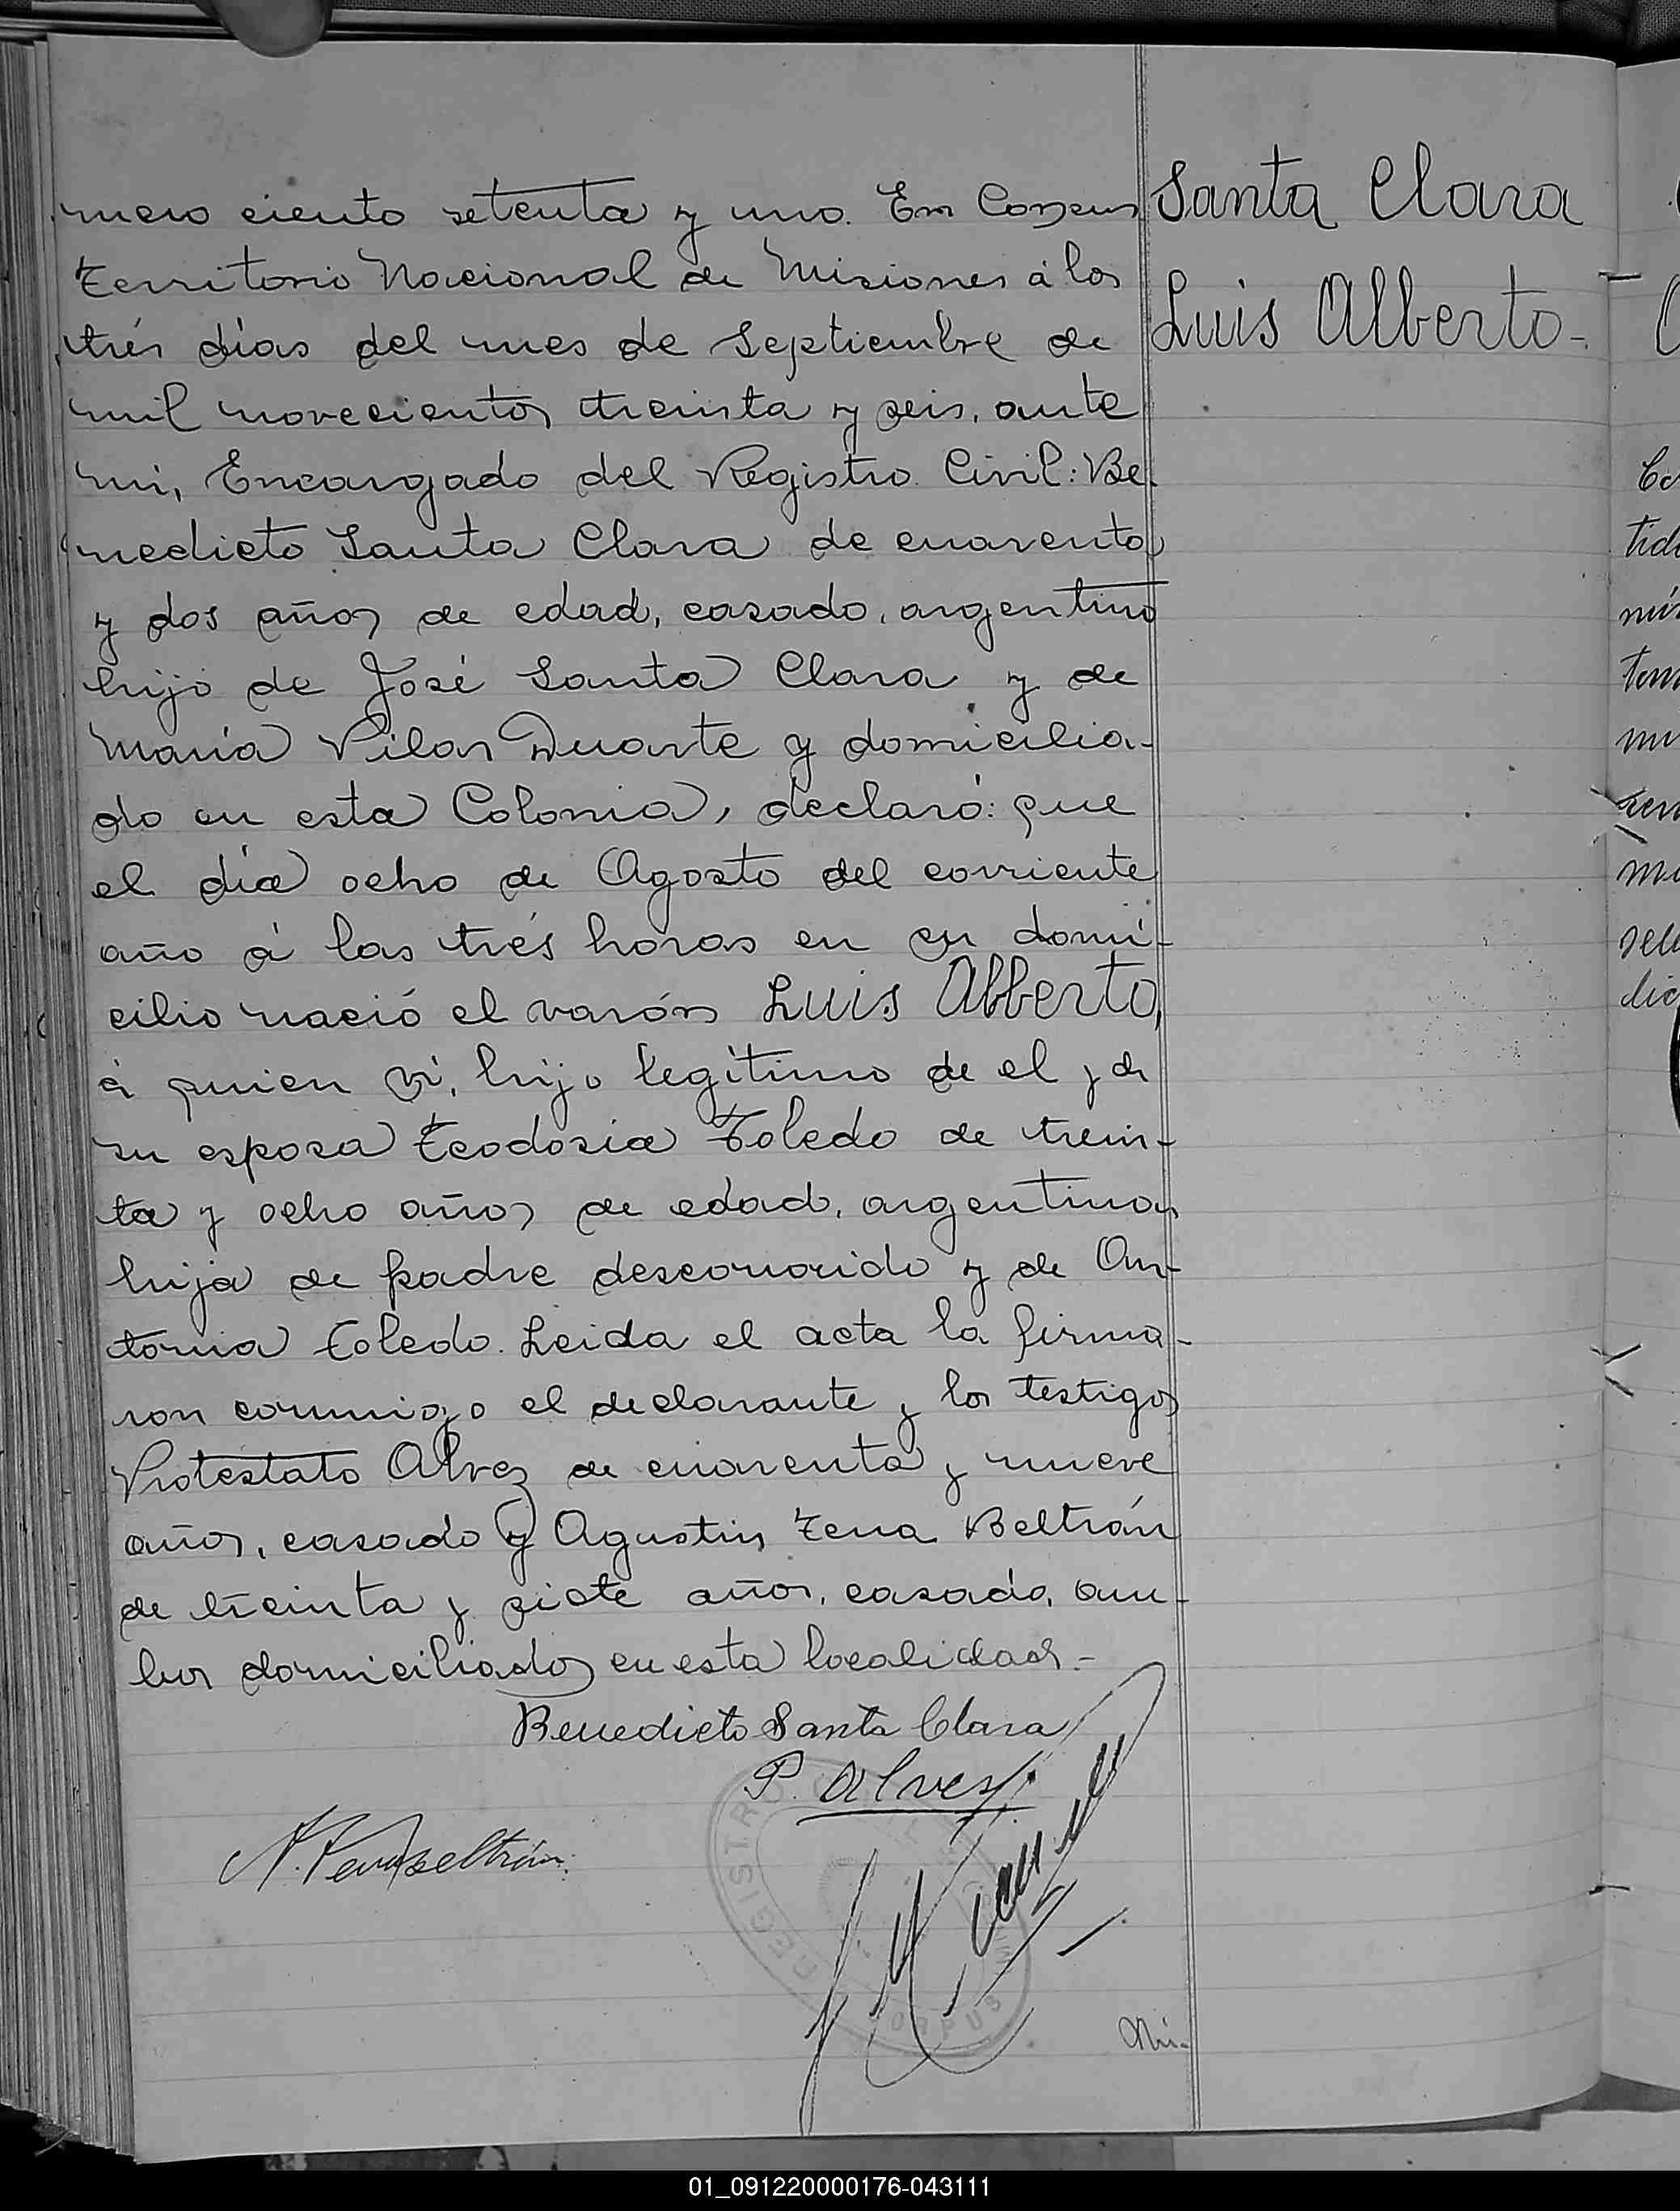 mero ciento setenta y uno. En Corpus
Territorio Nacional de Misiones á los
trés días del mes de Septiembre de
mil novecientos treinta y seis, ante
mi, Encargado del Registro Civil: Be-
nedicto Santa Clara de cuarenta
y dos años de edad, casado, argentino
hijo de José Santa Clara y de
María Pilar Duarte y domicilia-
do en esta Colonia, declaró: que
el día ocho de Agosto del corriente
año á las trés horas en su domi-
cilio nació el varón Luis Alberto,
á quien ví, hijo legítimo de el y de
su esposa Teodosia Toledo de trein-
ta y ocho años de edad, argentina,
hija de padre desconocido y de An-
tonia Toledo. Leida el acta la firma-
ron conmigo el declarante y los testigos
Protestato Alvez de cuarenta y nueve
años, casado y Agustin Tena Beltrán
de treinta y siete años, casado, am-
bos domiciliados en esta localidad.-
Benedicto Santa Clara
P. Alves
A. Tena Beltrán
REGISTRO CIVIL
CORPUS
Nú-
Santa Clara
Luis Alberto-
01_091220000176-043111